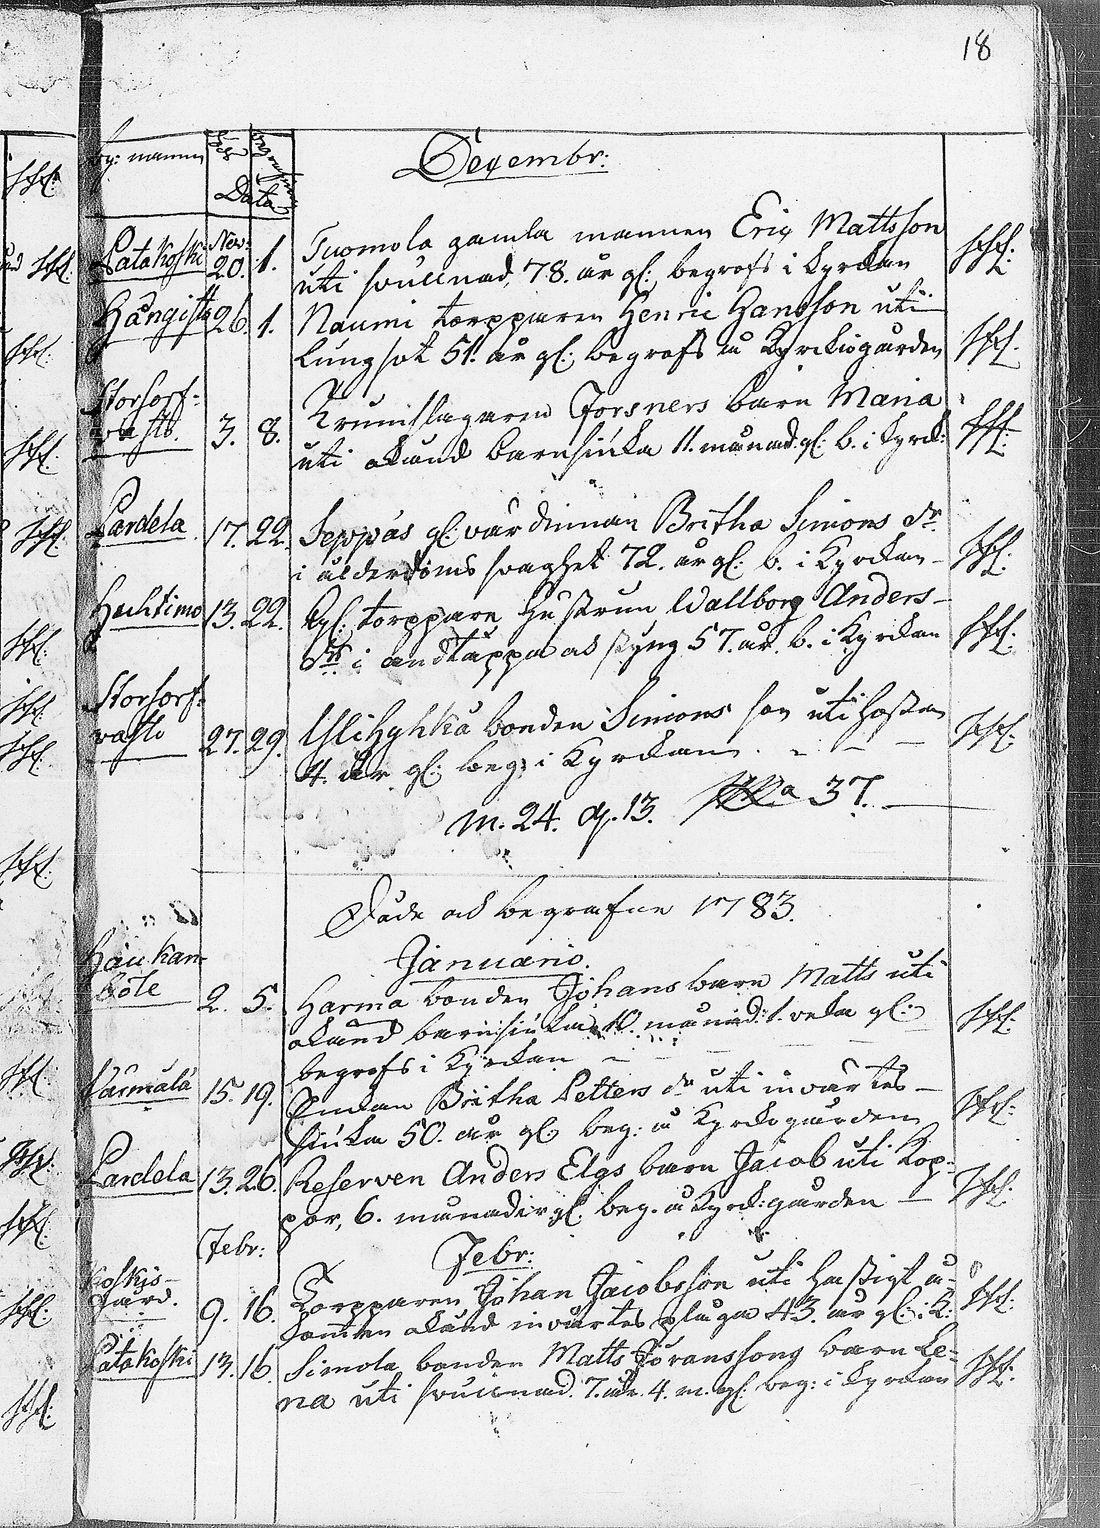 18
by: namnen
Död
begrafne
Data
Decembr:
Latakoski Nov: 20. 1. Tuomola gamla mannen Eric Mattsson
uti svullnad, 78. år gl: begrofs i Kyrckan
Hångisto 26. 1. Naumi torpparen Henric Hansson uti
lungsot 51. år gl: begrofs på Kyrckiogården
Storsorf-
vasto. 3. 8. Trumslagaren Forsners barn Maria
uti okänd barnsiuka 11. månad. gl: b. i Kyrck:
Lardela 17. 22. Seppäs gl: värdinnan Britha Simons dr
i ålderdoms svaghet 72. år gl: b. i Kyrckan
Huhtimo 13. 22. Gl: torppare hustrun Wallborg Anders-
dr i andtäppa och styng 57. år. b. i Kyrckan
Storsorf-
vasto 27. 29. Ylihyhkä bonden Simons son uti Hostan
4. år gl: beg: i Kyrckan
m. 24. q. 13. 37.
Döde och begrafne 1783.
Januario.
Haukan-
böle 2. 5. Harma bonden Johans barn Matts uti
okänd barnsiuka 10. månad: 1. veka gl:
begrofs i Kyrckan
15. 19. Enkan Britha Petters dr uti invärtes
siuka 50. år gl: beg: å Kyrckogården
Lardela 13. 26. Reserven Anders Elgs barn Jacob uti Kop-
por, 6. månader gl. beg. å Kyrck:gården
Febr: Febr:
Koskis-
Gård. 9. 16. Torpparen Johan Jacobsson uti hastigt å-
kommen okänd invärtes plåga 43. år gl: i K:
Latakoski 13. 16. Simola bonden Matts Göranssons barn Le-
na uti svullnad. 7. år. 4. m. gl: beg: i Kyrckan